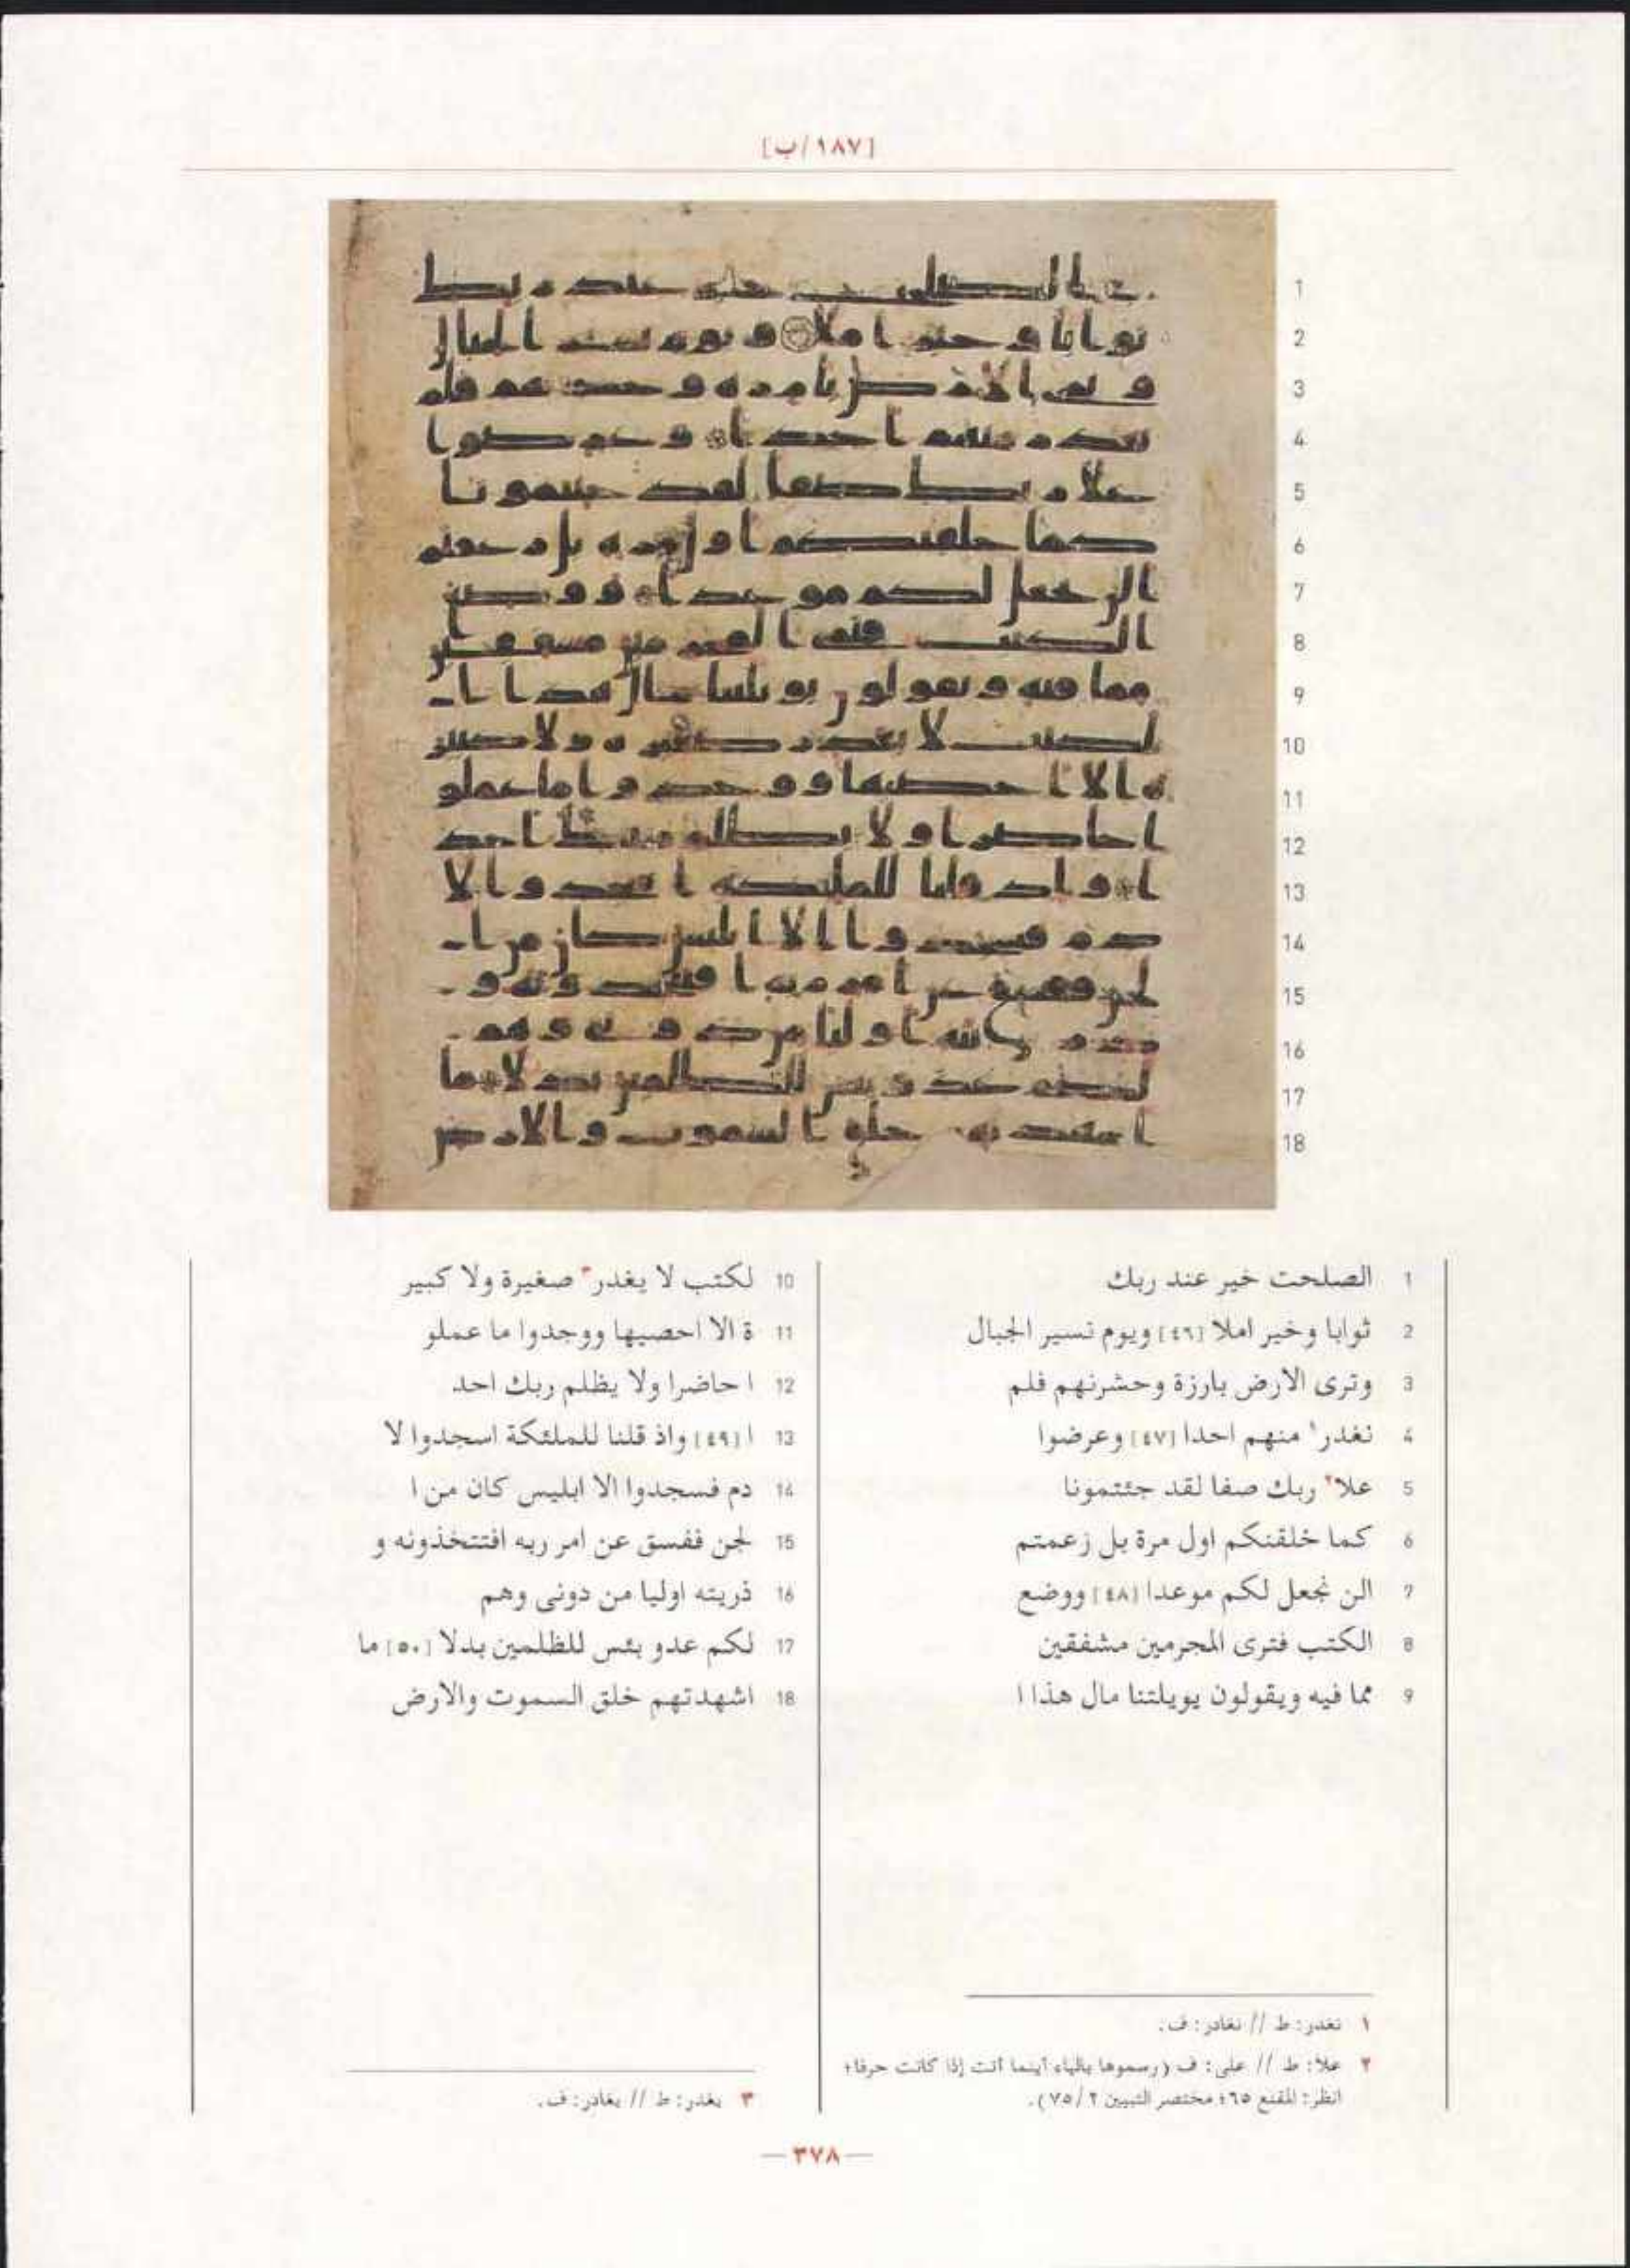 [١٨٧/ب]
1 الصلحت خير عند ربك
2 ثوابا وخير املا [٤٦] ويوم نسير الجبال
3 وترى الارض بارزة وحشرنهم فلم
4 نغدر١ منهم احدا [٤٧] وعرضوا
5 علا٢ ربك صفا لقد جئتمونا
6 كما خلقنكم اول مرة بل زعمتم
7 الن نجعل لكم موعدا [٤٨] ووضع
8 الكتب فترى المجرمين مشفقين
9 مما فيه ويقولون يويلتنا مال هذا ا
10 لكتب لا يغدر٣ صغيرة ولا كبير
11 ة الا احصيها ووجدوا ما عملو
12 ا حاضرا ولا يظلم ربك احد
13 ا [٤٩] واذ قلنا للملئكة اسجدوا لا
14 دم فسجدوا الا ابليس كان من ا
15 لجن ففسق عن امر ربه افتتخذونه و
16 ذريته اوليا من دونى وهم
17 لكم عدو بئس للظلمين بدلا [٥٠] ما
18 اشهدتهم خلق السموت والارض
١ نغدر: ط // نغادر: ف.
٢ علا: ط // على: ف (رسموها بالياء أينما أتت إذا كانت حرفا؛
انظر: المقنع ٦٥؛ مختصر التبيين ٢/ ٧٥).
٣ يغدر: ط // يغادر: ف.
— ٣٧٨ —